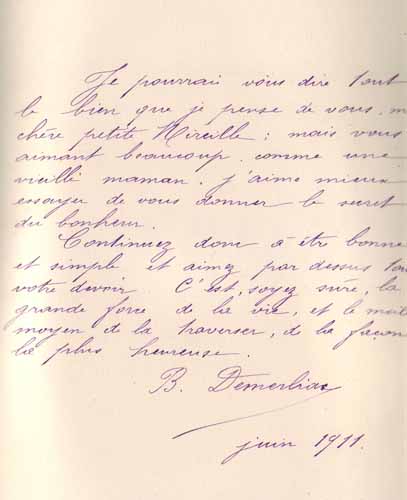 Je pourrai vous dire tout
le bien que je pense de vous, m
chère petite Mireille : mais vous
aimant beaucoup comme une
vieille maman. j'aime mieux
essayer de vous donner le secret
du bonheur.
Continuez donc à être bonne
et simple et aimez par dessus tou
votre devoir. C'est, soyez sûre, la
grande force de la vie, et le meil
moyen de la traverser, de la façon
la plus heureuse.
B. Demerliac
juin 1911.